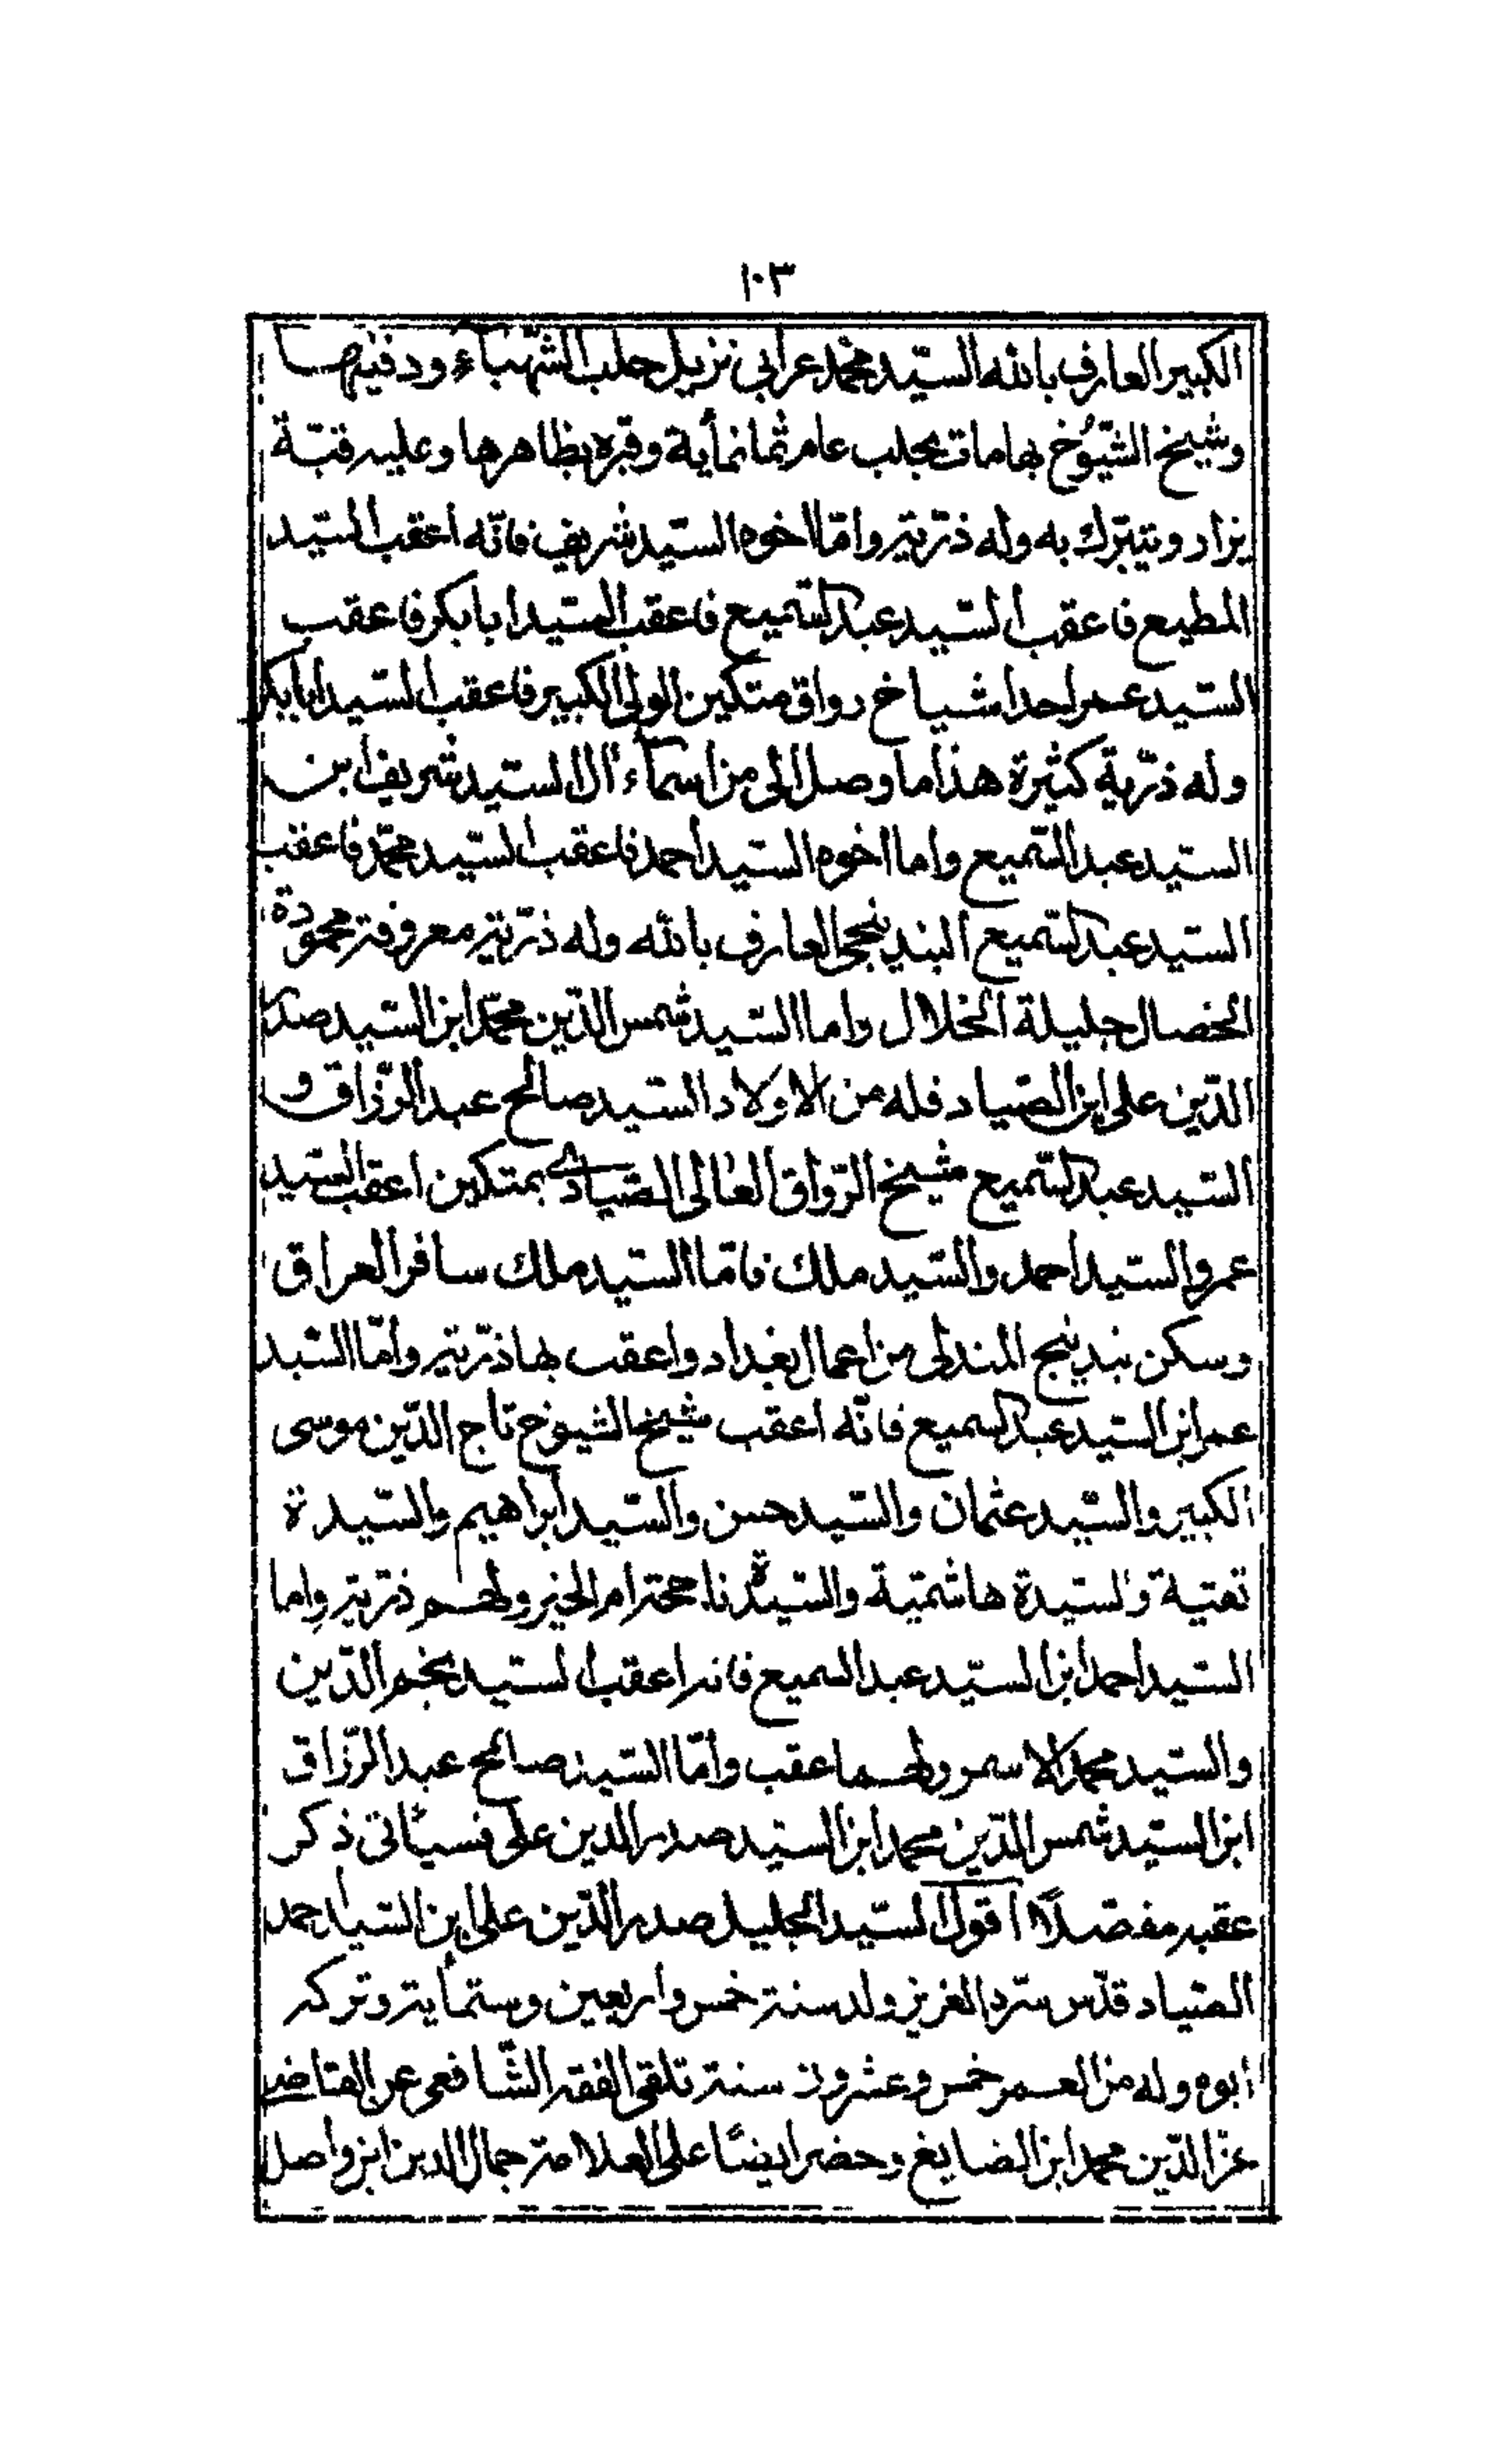 ١٠٣
الكبير العارف بالله السيد محمد عرابي نزيل حلب الشهباء ودفينها
وشيخ الشيوخ بها مات بحلب عام ثمانمأية وقبره بظاهرها وعليه قبّة
يزار ويتبرك به وله ذرّية وامّا اخوه السيد شريف فانّه اعقب السيد
المطيع فاعقب السيد عبد السميع فاعقب السيد ابا بكر فاعقب
السيد عمر احد اشياخ رواق متكين الولى الكبير فاعقب السيد ابا بكر
وله ذرّية كثيرة هذا ما وصل الى من اسمآء ال السيد شريف ابن
السيد عبد السّميع واما اخوه السيد احمد فاعقب السيد محمّد فاعقب
السيد عبد السّميع البندنيجى العارف بالله وله ذرّية معروفة محمودة
الخصال جليلة الخلال واما السيد شمس الدّين محمّد ابن السيد صدر
الدّين على ابن الصّياد فله من الاولاد السيد صالح عبد الرّزاق و
السيد عبد السّميع شيخ الرّواق العالى الصّيادى بمتكين اعقب السيد
عمر والسيد احمد والسّيد ملك فامّا السيد ملك سافر العراق
وسكن بندنيج المندلى من اعمال بغداد واعقب بها ذرّية وامّا السّيد
عمر ابن السيد عبد السميع فانّه اعقب شيخ الشيوخ تاج الدّين موسى
الكبير والسّيد عثمان والسّيد حسن والسّيد ابراهيم والسّيدة
تقية والسيدة هاشميّة والسّيدة ام الخير ولهم ذرّية واما
السّيد احمد ابن السّيد عبد السميع فانه اعقب السيد نجم الدّين
والسّيد محمد الاسمر ولهما عقب وامّا السّيد صالح عبد الرّزاق
ابن السّيد شمس الدّين محمد ابن السيد صدر الدين على فسيأتى ذكر
عقبه مفصلاً اقول السّيد الجليل صدر الدّين على ابن السّيد احمد
الصّياد قدّس سرّه العزيز ولد سنة خمس واربعين وستمأية وتركه
ابوه وله من العمر خمس وعشرون سنة تلقى الفقه الشّافعى عن القاضى
عزّ الدّين محمد ابن الصايغ وحضر ايضًا على العلامة جمال الدين ابن واصل